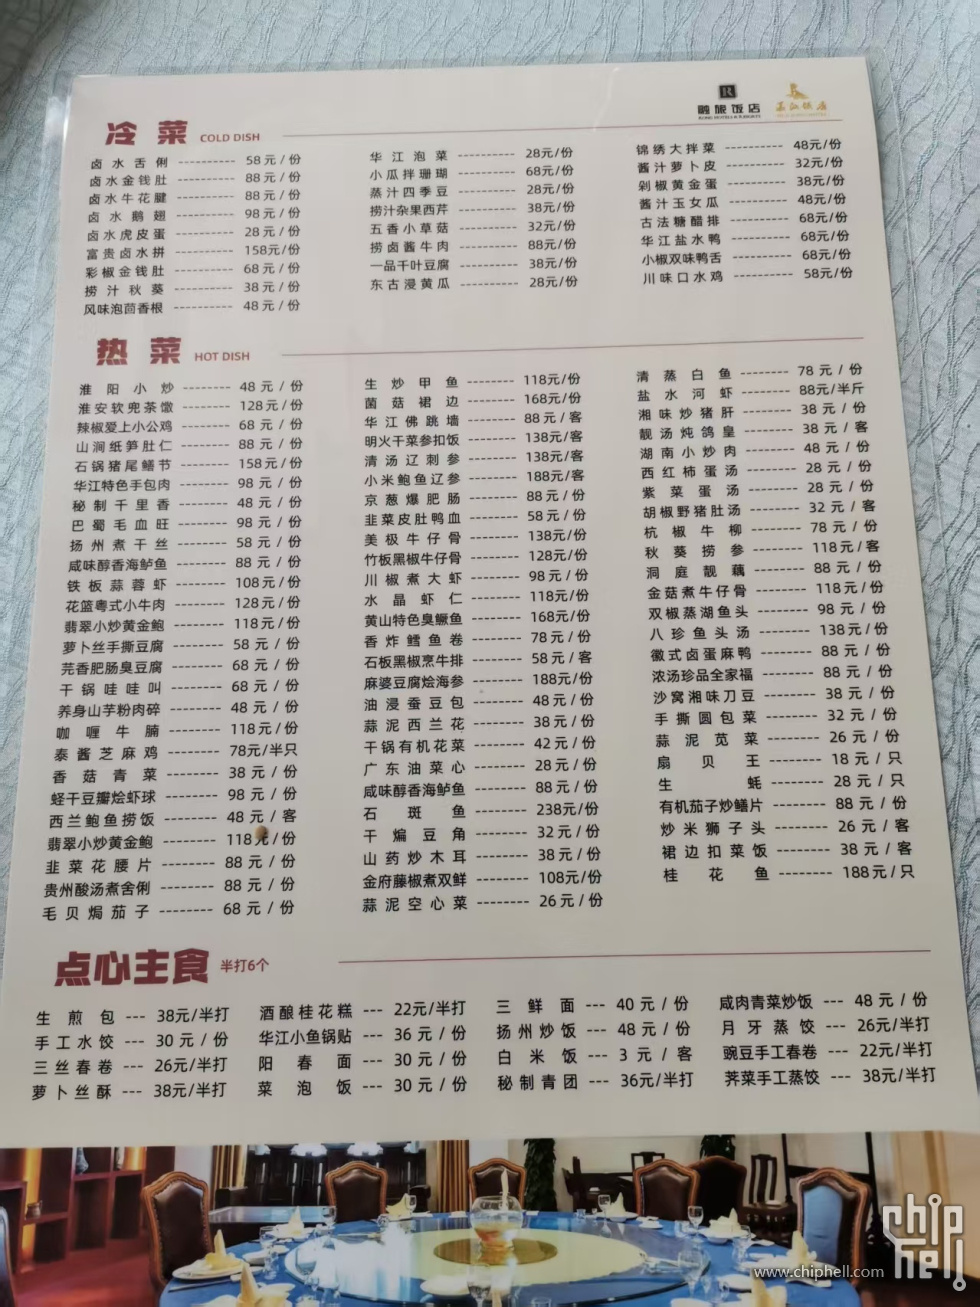 融旅饭店
冷菜 COLD DISH
卤水舌俐 ---------- 58元/份
卤水金钱肚 -------- 88元/份
卤水牛花腱 -------- 88元/份
卤水鹅翅 ---------- 98元/份
卤水虎皮蛋 -------- 28元/份
富贵卤水拼 -------- 158元/份
彩椒金钱肚 -------- 68元/份
捞汁秋葵 ---------- 38元/份
风味泡茴香根 -------- 48元/份
华江泡菜 ---------- 28元/份
小瓜拌珊瑚 -------- 68元/份
蒸汁四季豆 -------- 28元/份
捞汁杂果西芹 -------- 38元/份
五香小草菇 -------- 32元/份
捞卤酱牛肉 -------- 88元/份
一品千叶豆腐 -------- 38元/份
东古浸黄瓜 -------- 28元/份
锦绣大拌菜 ---------- 48元/份
酱汁萝卜皮 -------- 32元/份
剁椒黄金蛋 -------- 38元/份
酱汁玉女瓜 -------- 48元/份
古法糖醋排 -------- 68元/份
华江盐水鸭 -------- 68元/份
小椒双味鸭舌 -------- 68元/份
川味口水鸡 -------- 58元/份
热菜 HOT DISH
淮阳小炒 -------- 48元/份
淮安软兜茶馓 -------- 128元/份
辣椒爱上小公鸡 -------- 68元/份
山涧纸笋肚仁 -------- 88元/份
石锅猪尾鳝节 -------- 158元/份
华江特色手包肉 -------- 98元/份
秘制千里香 -------- 48元/份
巴蜀毛血旺 -------- 98元/份
扬州煮干丝 -------- 58元/份
咸味醇香海鲈鱼 -------- 88元/份
铁板蒜蓉虾 -------- 108元/份
花篮粤式小牛肉 -------- 128元/份
翡翠小炒黄金鲍 -------- 118元/份
萝卜丝手撕豆腐 -------- 58元/份
芫香肥肠臭豆腐 -------- 68元/份
干锅哇哇叫 -------- 68元/份
养身山芋粉肉碎 -------- 48元/份
咖喱牛腩 -------- 118元/份
泰酱芝麻鸡 -------- 78元/半只
香菇青菜 -------- 38元/份
蛏干豆瓣烩虾球 -------- 98元/份
西兰鲍鱼捞饭 -------- 48元/客
翡翠小炒黄金鲍 -------- 118元/份
韭菜花腰片 -------- 88元/份
贵州酸汤煮舍俐 -------- 88元/份
毛贝焗茄子 -------- 68元/份
生炒甲鱼 -------- 118元/份
菌菇裙边 -------- 168元/份
华江佛跳墙 -------- 88元/客
明火干菜参扣饭 -------- 138元/客
清汤辽刺参 -------- 138元/客
小米鲍鱼辽参 -------- 188元/客
京葱爆肥肠 -------- 88元/份
韭菜皮肚鸭血 -------- 58元/份
美极牛仔骨 -------- 138元/份
竹板黑椒牛仔骨 -------- 128元/份
川椒煮大虾 -------- 98元/份
水晶虾仁 -------- 118元/份
黄山特色臭鳜鱼 -------- 168元/份
香炸鳕鱼卷 -------- 78元/份
石板黑椒烹牛排 -------- 58元/客
麻婆豆腐烩海参 -------- 188元/份
油浸蚕豆包 -------- 48元/份
蒜泥西兰花 -------- 38元/份
干锅有机花菜 -------- 42元/份
广东油菜心 -------- 28元/份
咸味醇香海鲈鱼 -------- 88元/份
石斑鱼 -------- 238元/份
干煸豆角 -------- 32元/份
山药炒木耳 -------- 38元/份
金府藤椒煮双鲜 -------- 108元/份
蒜泥空心菜 -------- 26元/份
清蒸白鱼 -------- 78元/份
盐水河虾 -------- 88元/半斤
湘味炒猪肝 -------- 38元/份
靓汤炖鸽皇 -------- 38元/客
湖南小炒肉 -------- 48元/份
西红柿蛋汤 -------- 28元/份
紫菜蛋汤 -------- 28元/份
胡椒野猪肚汤 -------- 32元/客
杭椒牛柳 -------- 78元/份
秋葵捞参 -------- 118元/客
洞庭靓藕 -------- 88元/份
金菇煮牛仔骨 -------- 118元/份
双椒蒸湖鱼头 -------- 98元/份
八珍鱼头汤 -------- 138元/份
徽式卤蛋麻鸭 -------- 88元/份
浓汤珍品全家福 -------- 88元/份
沙窝湘味刀豆 -------- 38元/份
手撕圆包菜 -------- 32元/份
蒜泥苋菜 -------- 26元/份
扇贝王 -------- 18元/只
生蚝 -------- 28元/只
有机茄子炒鳝片 -------- 88元/份
炒米狮子头 -------- 26元/客
裙边扣菜饭 -------- 38元/客
桂花鱼 -------- 188元/只
点心主食 半打6个
生煎包 --- 38元/半打
手工水饺 --- 30元/份
三丝春卷 --- 26元/半打
萝卜丝酥 --- 38元/半打
酒酿桂花糕 --- 22元/半打
华江小鱼锅贴 --- 36元/份
阳春面 --- 30元/份
菜泡饭 --- 30元/份
三鲜面 --- 40元/份
扬州炒饭 --- 48元/份
白米饭 --- 3元/客
秘制青团 --- 36元/半打
咸肉青菜炒饭 --- 48元/份
月牙蒸饺 --- 26元/半打
豌豆手工春卷 --- 22元/半打
荠菜手工蒸饺 --- 38元/半打
chiphell
www.chiphell.com